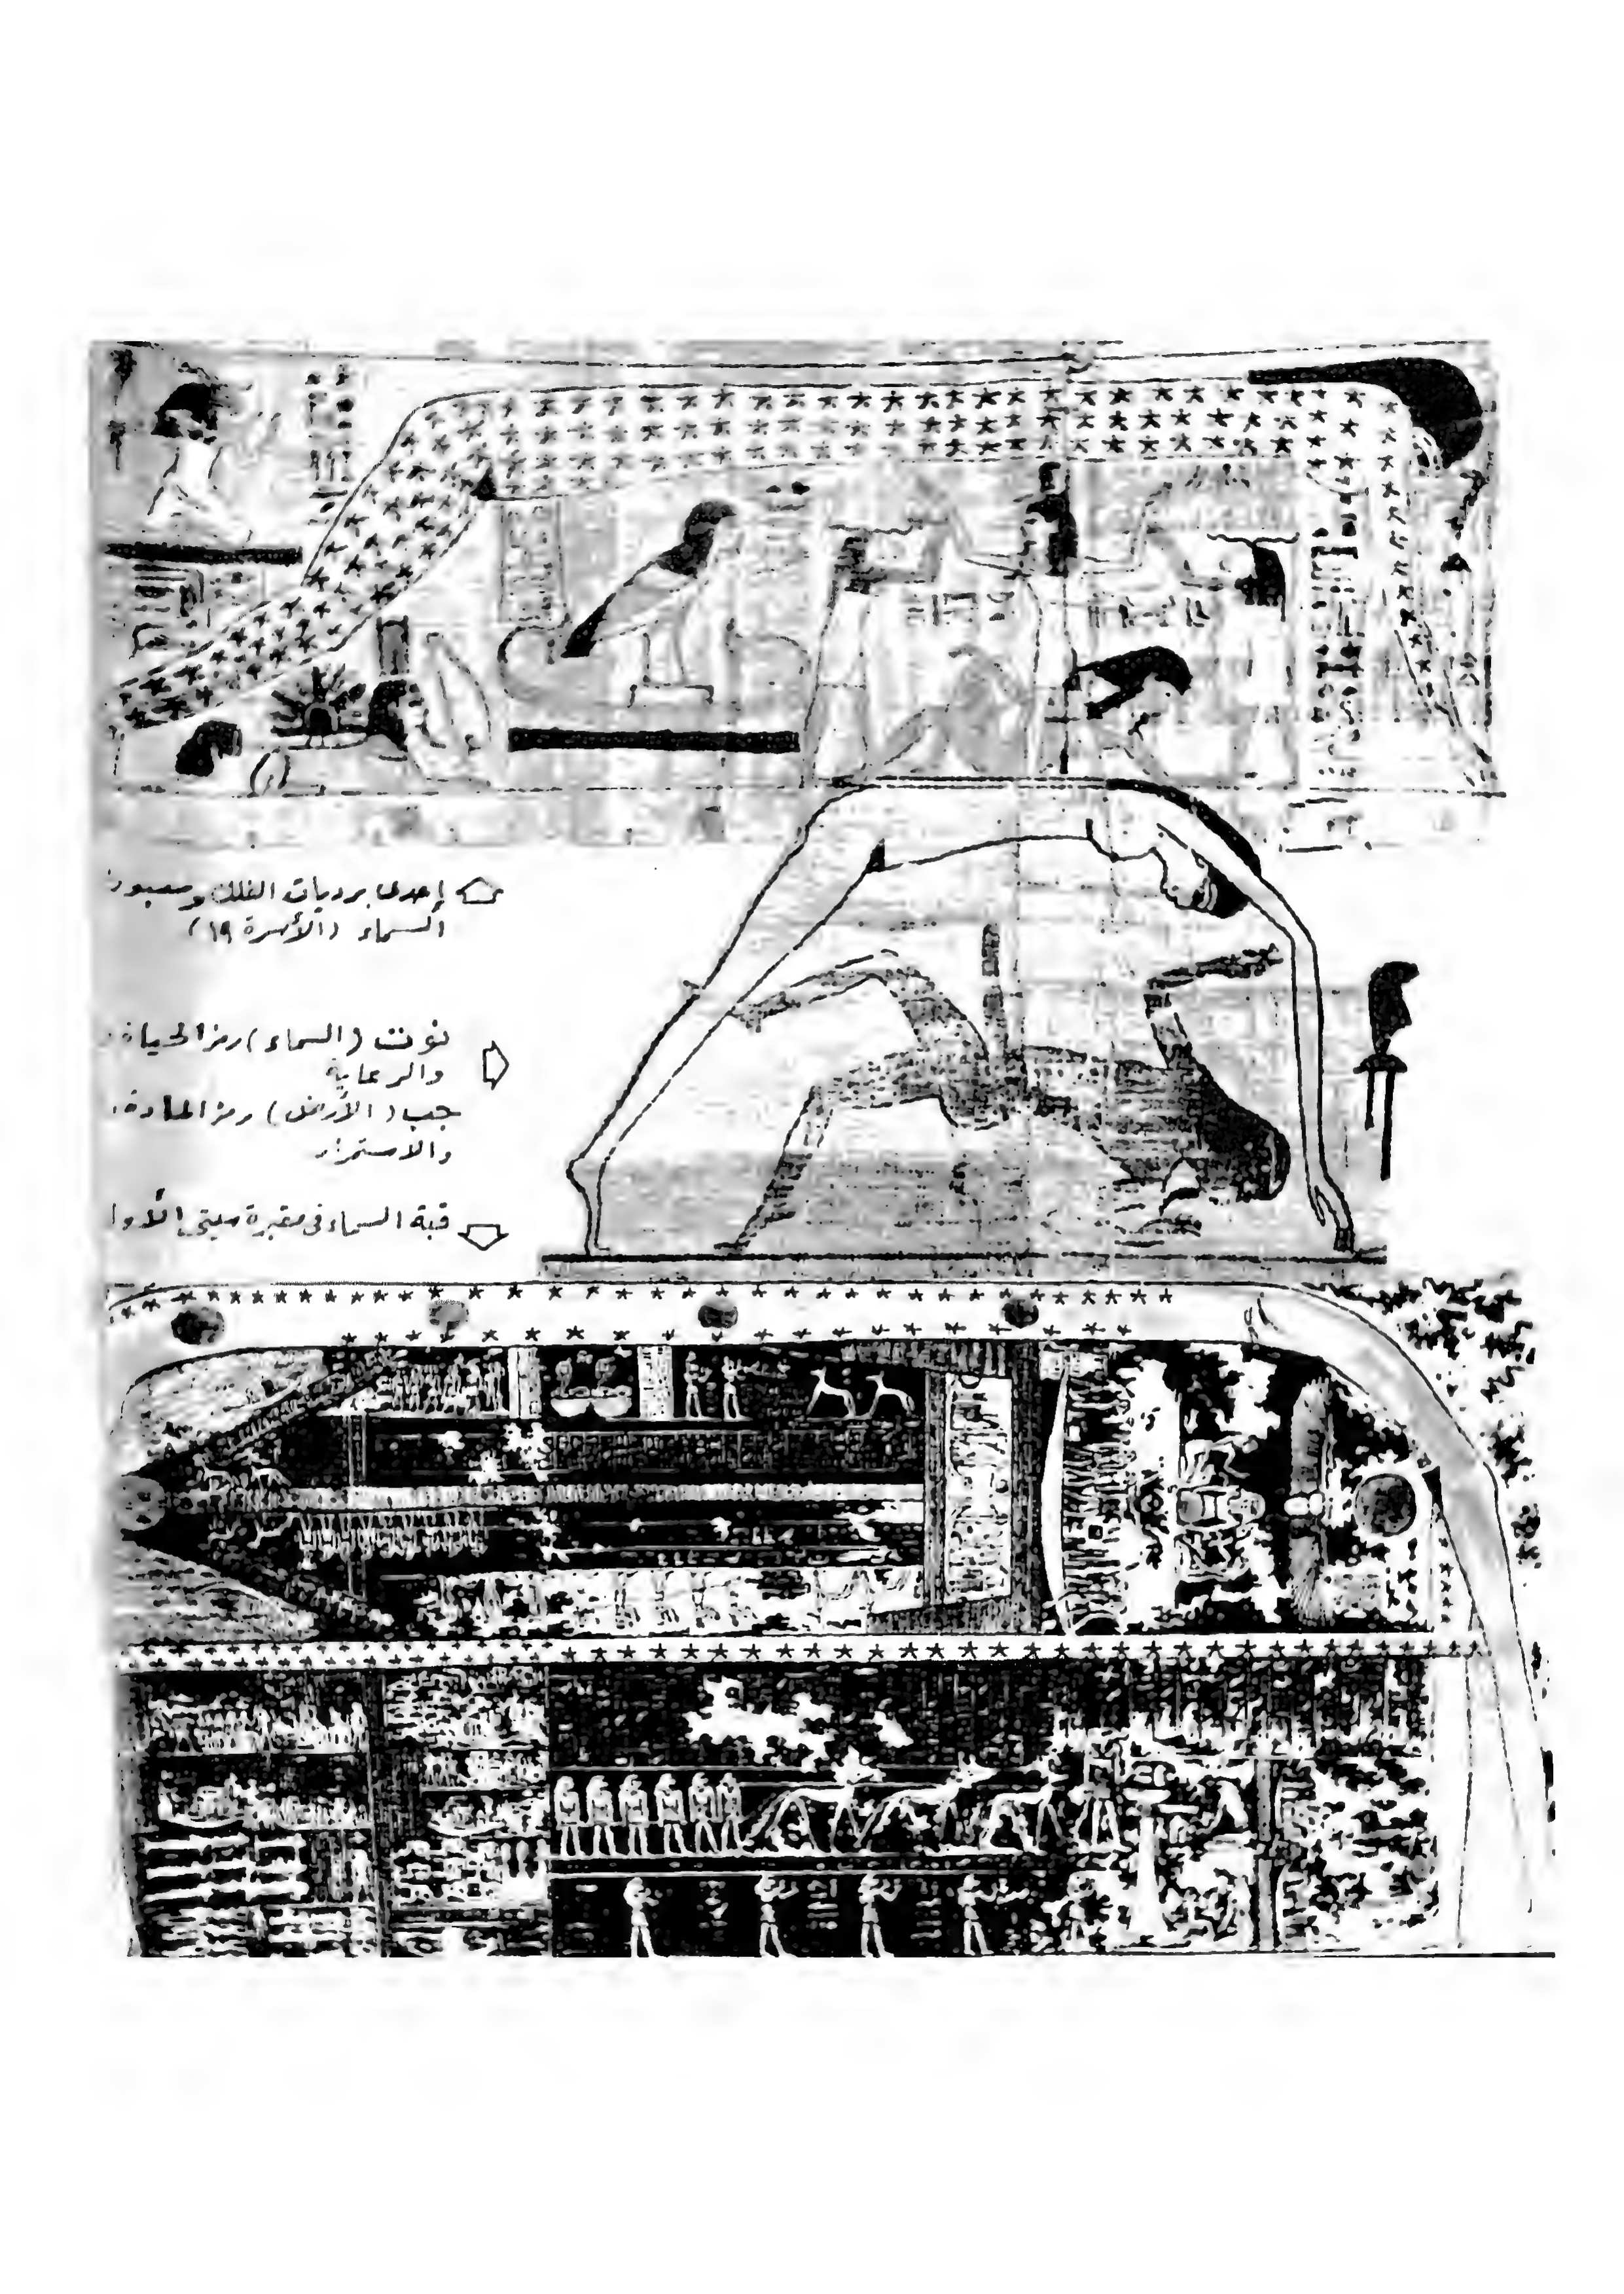 إحدى برديات الفلك ومعبود
السماء (الأسرة ١٩)
نونت (السماء) رمز الحياة
والرعاية
جب (الأرض) رمز المادة
والاستمرار
قبة السماء فى مقبرة سيتى الأول